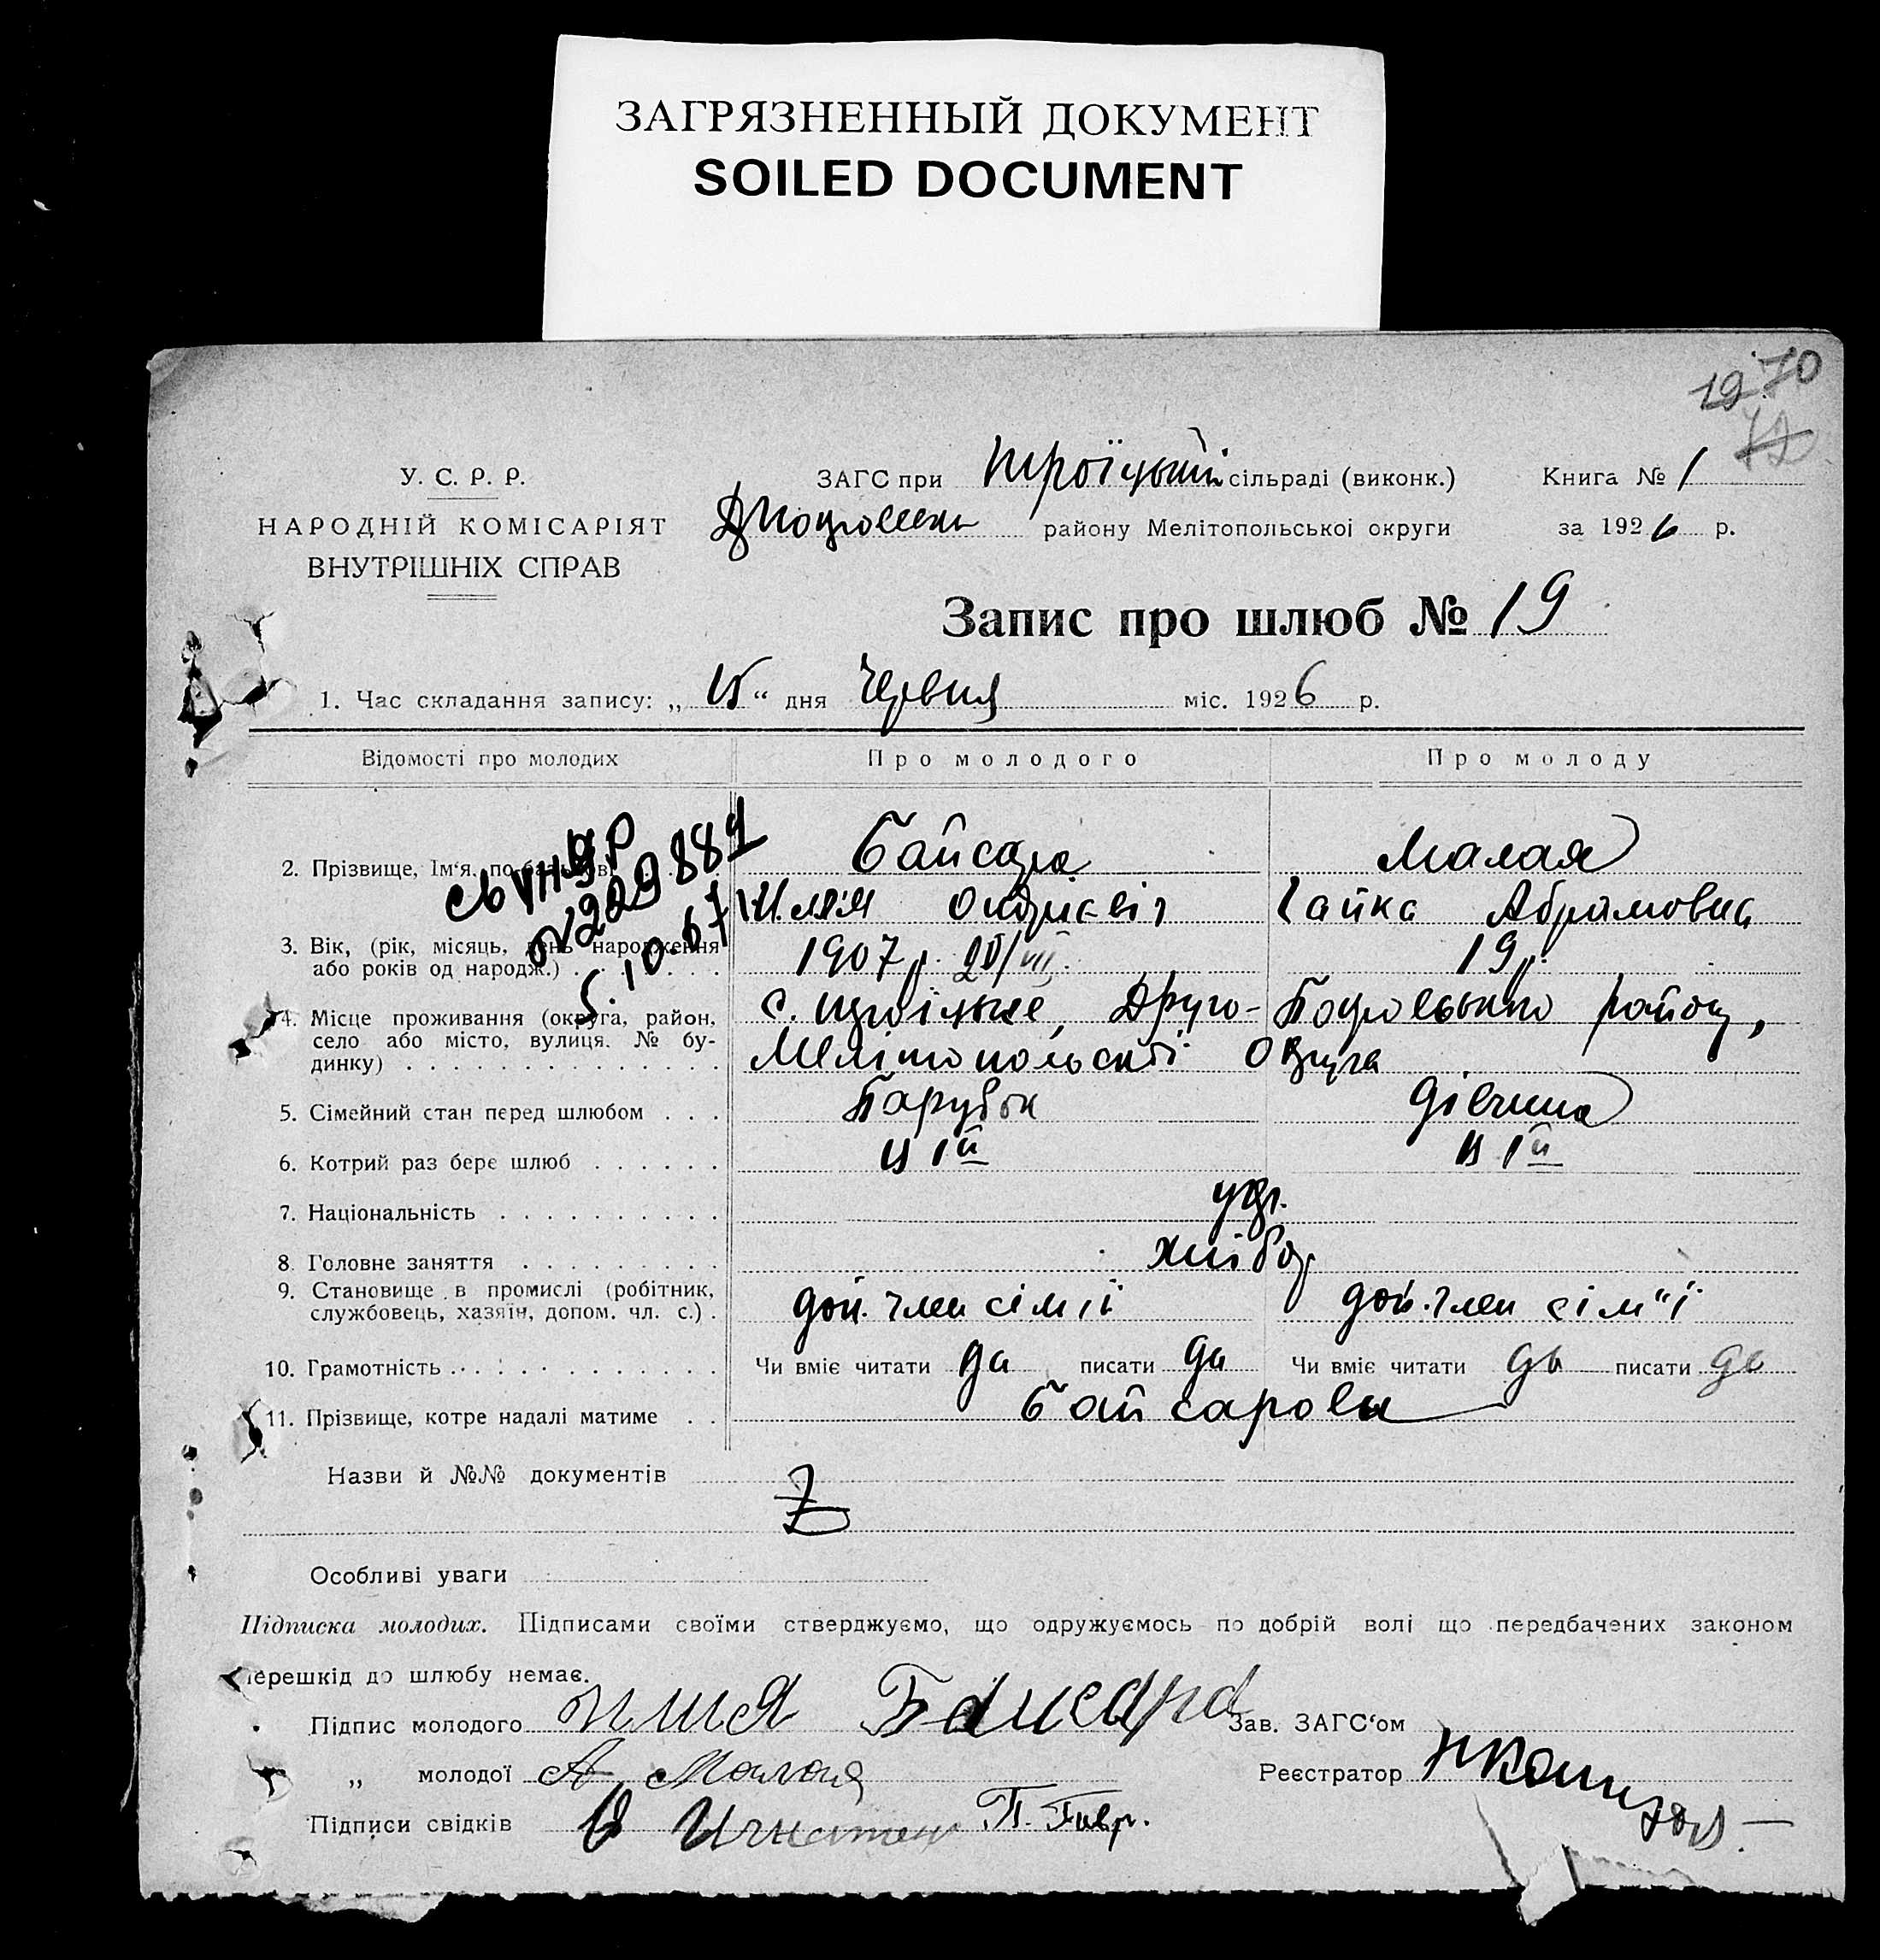 ЗАГРЯЗНЕННЫЙ ДОКУМЕНТ
SOILED DOCUMENT
19 70
У. С. Р. Р.
НАРОДНІЙ КОМІСАРІЯТ
ВНУТРІШНІХ СПРАВ
ЗАГС при Троїцькій сільраді (виконк.) Книга № 1
району Мелітопольської округи за 1926 р.
Запис про шлюб № 19
1. Час складання запису: „15“ дня Червня міс. 1926 р.
Відомості про молодих Про молодого Про молоду
2. Прізвище, Ім‘я, по-батькові Байсара Малая
Ілля Андрієвіч Абрамовна
3. Вік, (рік, місяць, день народження 1907 р. 20/VII. 19 р.
або років од народж.)
№ 229881
5.10.67
4. Місце проживання (округа, район, с. Троїцьке, Друго- Покровського району,
село або місто, вулиця. № бу- Мелітопольської Округа
динку)
5. Сімейний стан перед шлюбом Парубок дівчина
6. Котрий раз бере шлюб в 1й в 1й
7. Національність укр.
8. Головне заняття хлібор
9. Становище в промислі (робітник, доп. член сімії доп. член сім"ї
службовець, хазяїн, допом. чл. с.)
10. Грамотність Чи вміє читати да писати да Чи вміє читати да писати да
11. Прізвище, котре надалі матиме Байсарови
Назви й №№ документів
Особливі уваги
Підписка молодих. Підписами своїми стверджуємо, що одружуємось по добрій волі що передбачених законом
перешкід до шлюбу немає.
Підпис молодого Илия Байсара Зав. ЗАГС‘ом
„ молодої А Малая Реєстратор
Підписи свідків